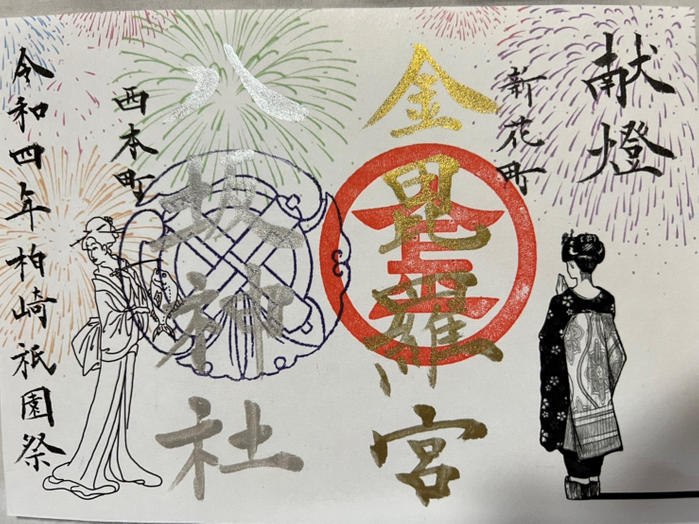 献燈
新花町
金毘羅宮
八坂神社
西本町
令和四年柏崎祇園祭